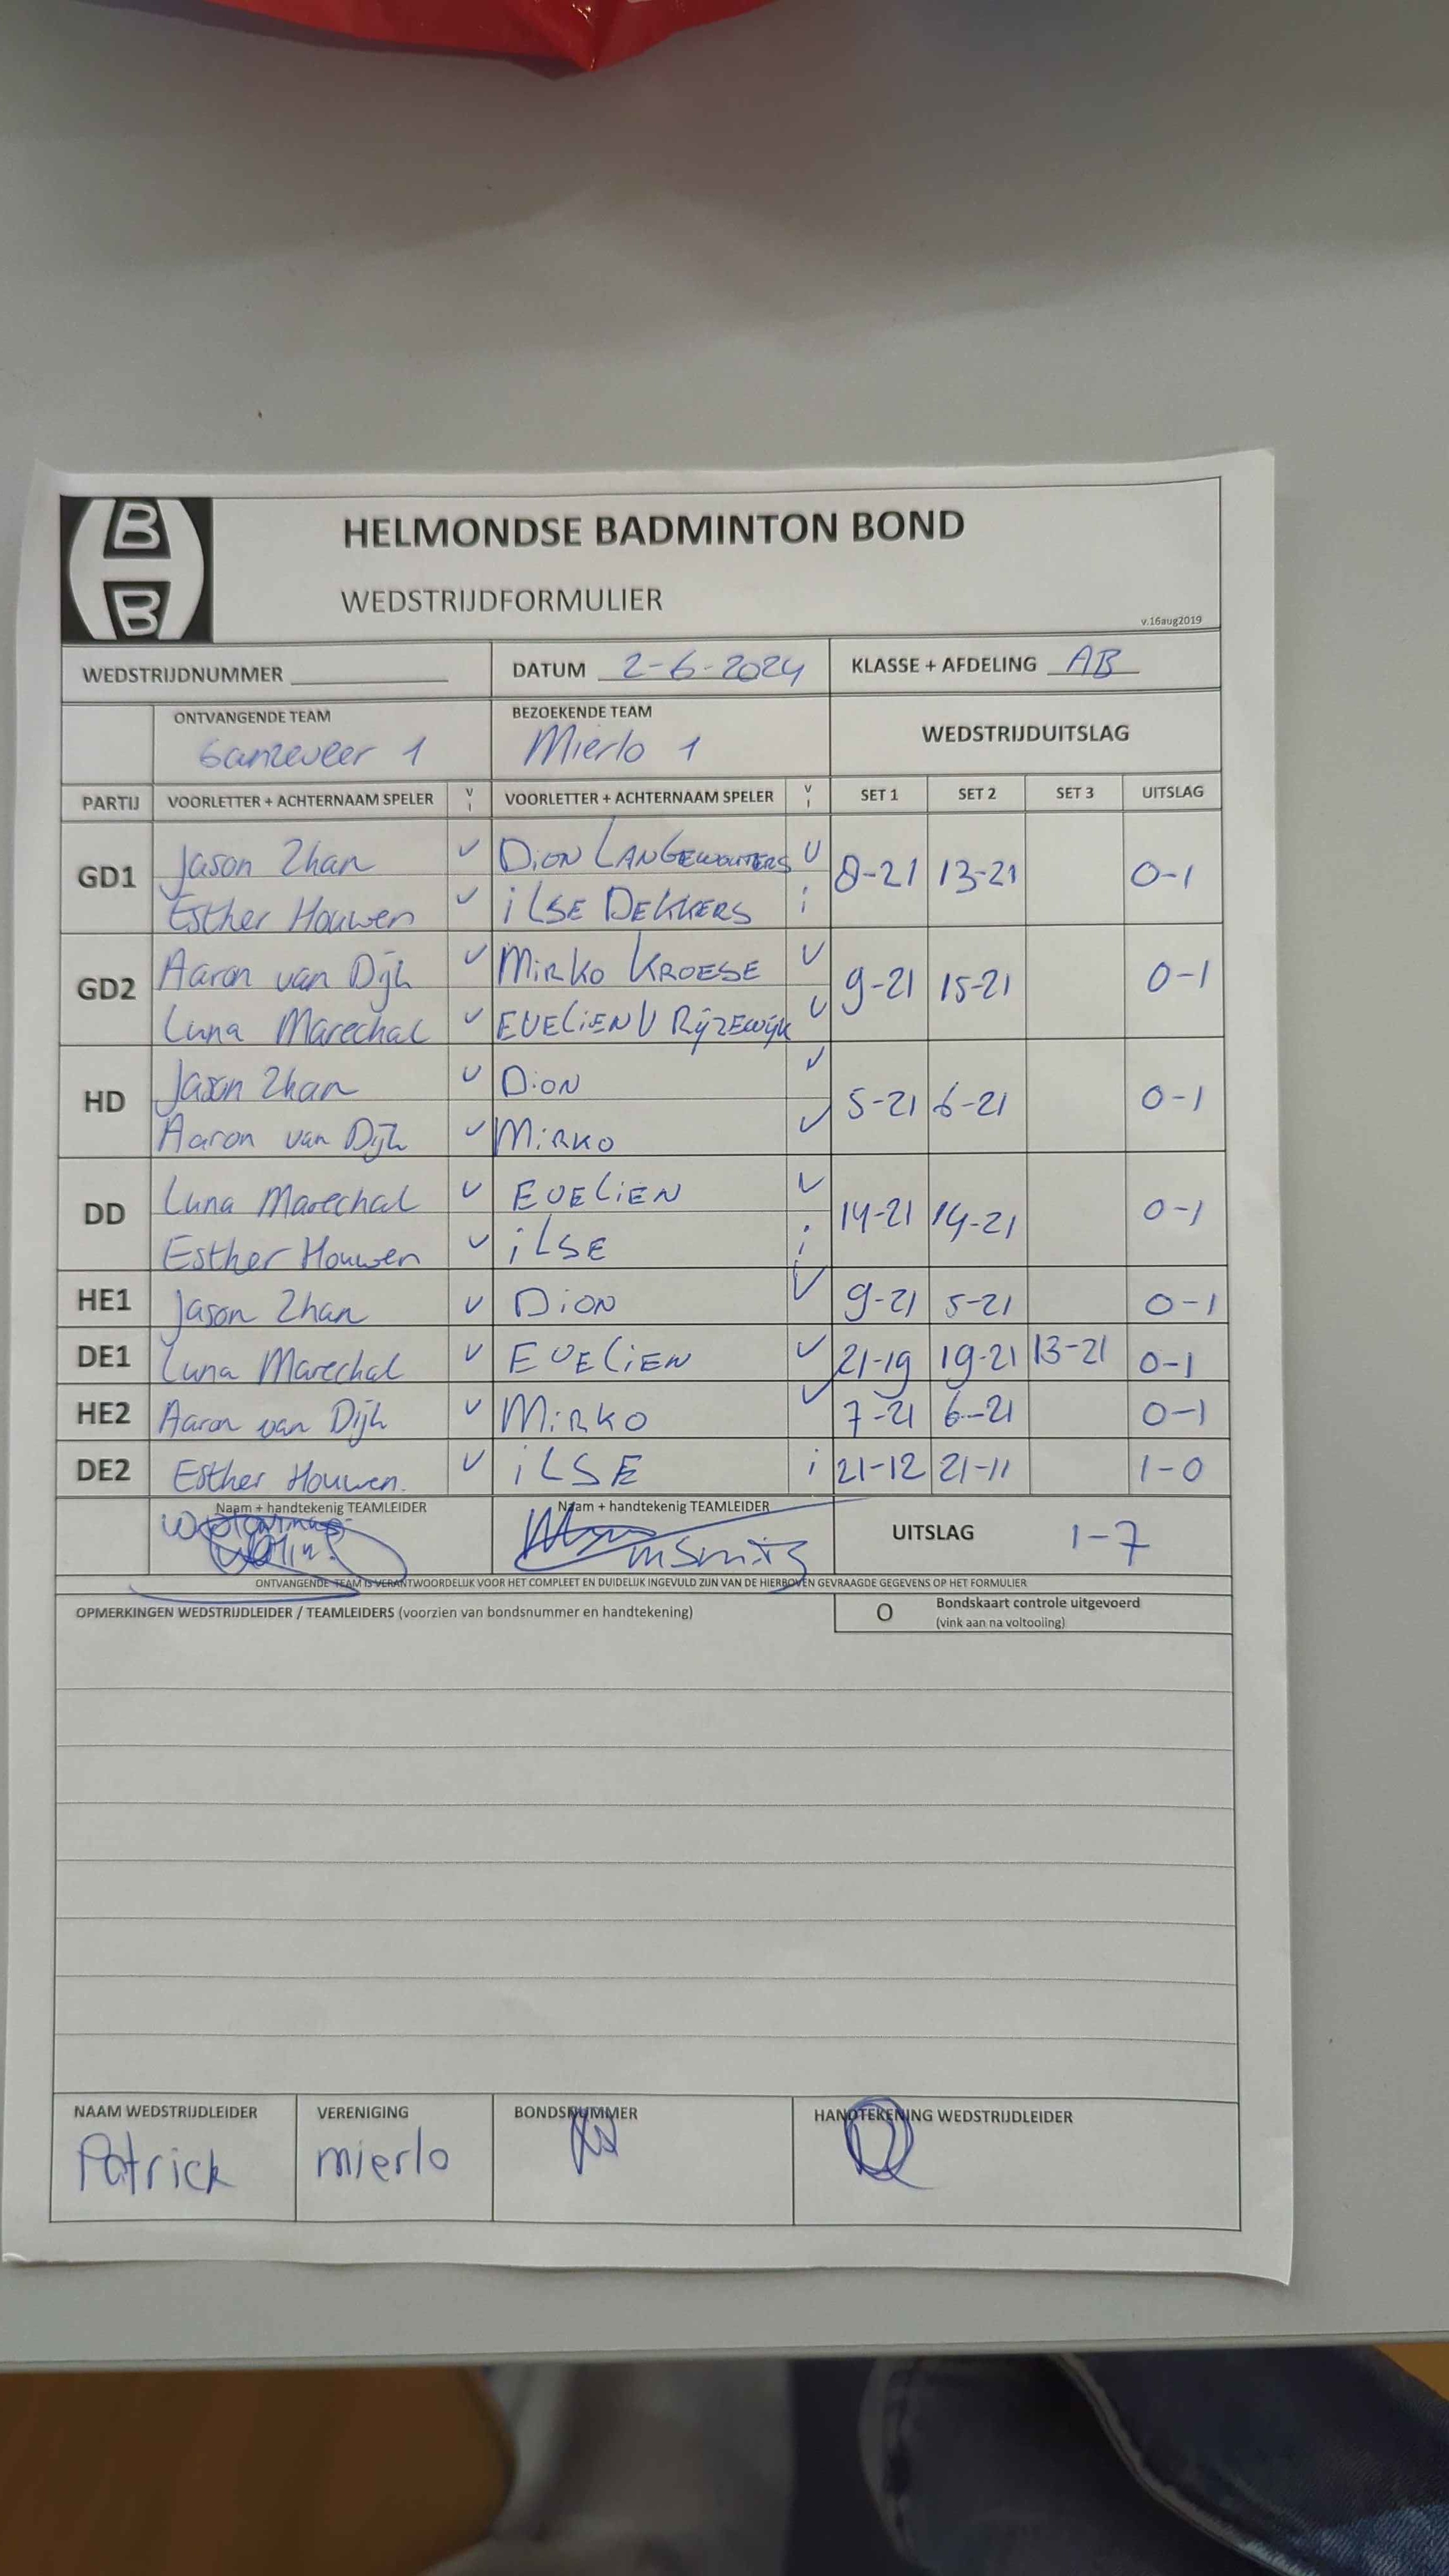 B
B
HELMONDSE BADMINTON BOND
WEDSTRIJDFORMULIER
v.16aug2019
WEDSTRIJDNUMMER DATUM 2-6-2024 KLASSE + AFDELING AB
ONTVANGENDE TEAM BEZOEKENDE TEAM WEDSTRIJDUITSLAG
Ganzeveer 1 Mierlo 1
PARTIJ VOORLETTER + ACHTERNAAM SPELER V I VOORLETTER + ACHTERNAAM SPELER V I SET 1 SET 2 SET 3 UITSLAG
GD1 Jason Zhan v DION LANGEWOUTERS V 8-21 13-21 0-1
Esther Houwen v iLSE DEKKERS i
GD2 Aaron van Dijk v MIRKO KROESE V 9-21 15-21 0-1
Luna Marechal v EVELIEN V RIJZEWIJK V
HD Jason Zhan v DION v 5-21 6-21 0-1
Aaron van Dijk v MIRKO v
DD Luna Marechal v EVELIEN v 14-21 14-21 0-1
Esther Houwen v iLSE i
HE1 Jason Zhan v DION V 9-21 5-21 0-1
DE1 Luna Marechal v EVELIEN v 21-19 19-21 13-21 0-1
HE2 Aaron van Dijk v MIRKO v 7-21 6-21 0-1
DE2 Esther Houwen. v iLSE i 21-12 21-11 1-0
Naam + handtekenig TEAMLEIDER Naam + handtekenig TEAMLEIDER UITSLAG 1-7
m Smits
ONTVANGENDE TEAM IS VERANTWOORDELIJK VOOR HET COMPLEET EN DUIDELIJK INGEVULD ZIJN VAN DE HIERBOVEN GEVRAAGDE GEGEVENS OP HET FORMULIER
OPMERKINGEN WEDSTRIJDLEIDER / TEAMLEIDERS (voorzien van bondsnummer en handtekening) O Bondskaart controle uitgevoerd
(vink aan na voltooiing)
NAAM WEDSTRIJDLEIDER VERENIGING BONDSNUMMER HANDTEKENING WEDSTRIJDLEIDER
Patrick mierlo